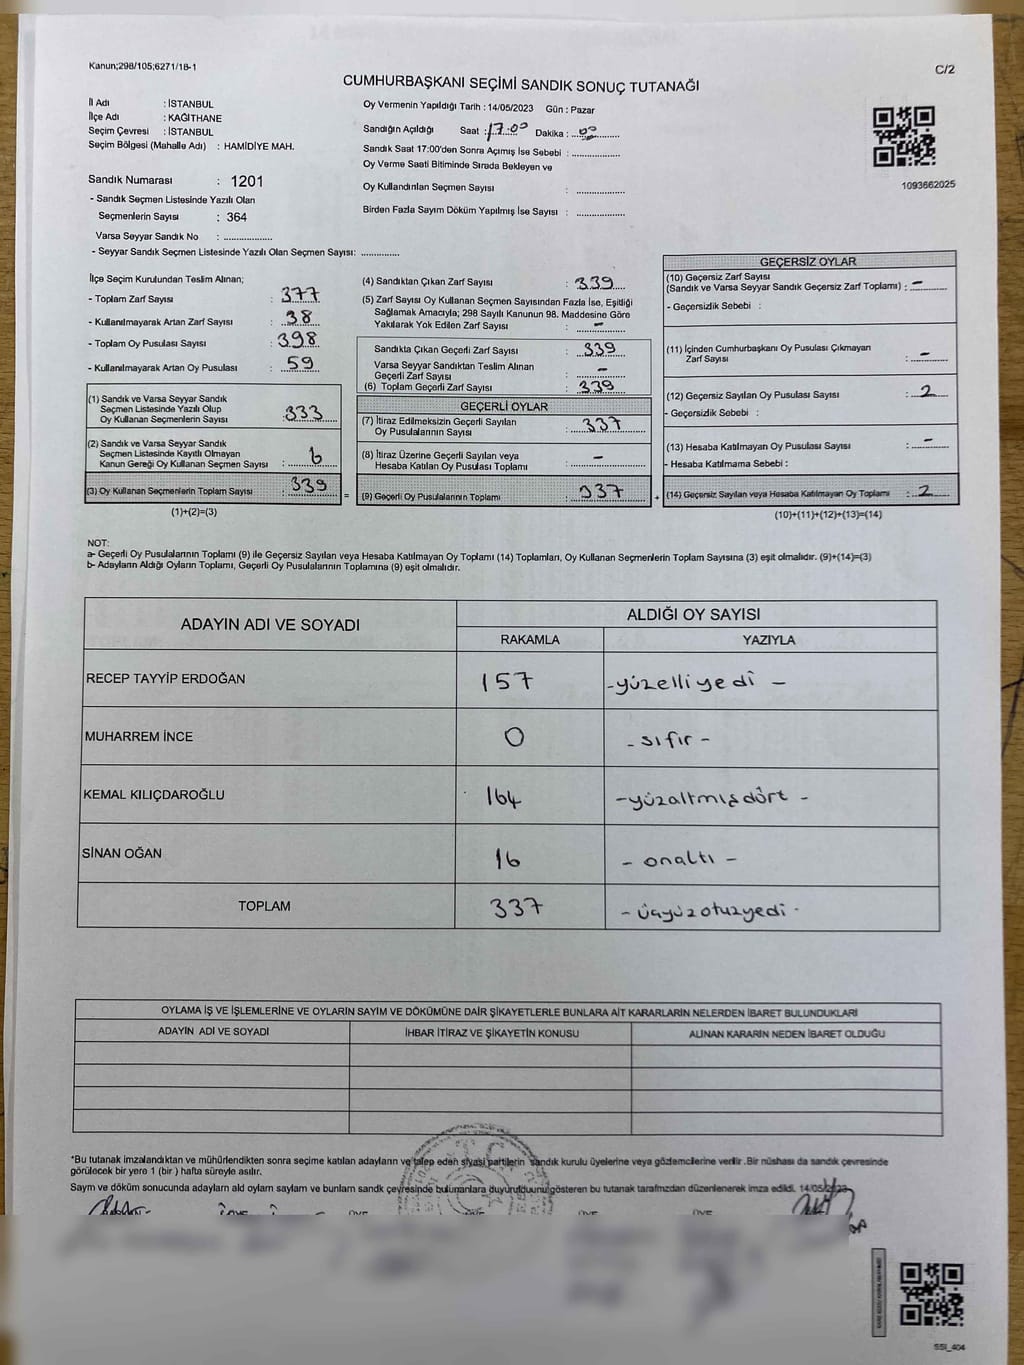 Kanun;298/105;6271/18-1
C/2
CUMHURBAŞKANI SEÇİMİ SANDIK SONUÇ TUTANAĞI
İl Adı : İSTANBUL
İlçe Adı : KAĞITHANE
Seçim Çevresi : İSTANBUL
Seçim Bölgesi (Mahalle Adı) : HAMİDİYE MAH.
Sandık Numarası : 1201
- Sandık Seçmen Listesinde Yazılı Olan
Seçmenlerin Sayısı : 364
Varsa Seyyar Sandık No : ................
- Seyyar Sandık Seçmen Listesinde Yazılı Olan Seçmen Sayısı: .............
Oy Vermenin Yapıldığı Tarih : 14/05/2023 Gün : Pazar
Sandığın Açıldığı Saat : 17:00 Dakika : 00
Sandık Saat 17:00'den Sonra Açımış İse Sebebi : ................
Oy Verme Saati Bitiminde Sırada Bekleyen ve
Oy Kullandırılan Seçmen Sayısı : ................
Birden Fazla Sayım Döküm Yapılmış İse Sayısı : ................
1093662025
İlçe Seçim Kurulundan Teslim Alınan;
- Toplam Zarf Sayısı : 377
- Kullanılmayarak Artan Zarf Sayısı : 38
- Toplam Oy Pusulası Sayısı : 398
- Kullanılmayarak Artan Oy Pusulası : 59
(1) Sandık ve Varsa Seyyar Sandık
Seçmen Listesinde Yazılı Olup
Oy Kullanan Seçmenlerin Sayısı : 333
(2) Sandık ve Varsa Seyyar Sandık
Seçmen Listesinde Kayıtlı Olmayan
Kanun Gereği Oy Kullanan Seçmen Sayısı : 6
(3) Oy Kullanan Seçmenlerin Toplam Sayısı : 339
(1)+(2)=(3)
(4) Sandıktan Çıkan Zarf Sayısı : 339
(5) Zarf Sayısı Oy Kullanan Seçmen Sayısından Fazla İse, Eşitliği
Sağlamak Amacıyla; 298 Sayılı Kanunun 98. Maddesine Göre
Yakılarak Yok Edilen Zarf Sayısı : -
Sandıkta Çıkan Geçerli Zarf Sayısı : 339
Varsa Seyyar Sandıktan Teslim Alınan
Geçerli Zarf Sayısı : -
(6) Toplam Geçerli Zarf Sayısı : 339
GEÇERLİ OYLAR
(7) İtiraz Edilmeksizin Geçerli Sayılan
Oy Pusulalarının Sayısı : 337
(8) İtiraz Üzerine Geçerli Sayılan veya
Hesaba Katılan Oy Pusulası Toplamı : -
= (9) Geçerli Oy Pusulalarının Toplamı : 337 +
GEÇERSİZ OYLAR
(10) Geçersiz Zarf Sayısı
(Sandık ve Varsa Seyyar Sandık Geçersiz Zarf Toplamı) : -
- Geçersizlik Sebebi :
(11) İçinden Cumhurbaşkanı Oy Pusulası Çıkmayan
Zarf Sayısı : -
(12) Geçersiz Sayılan Oy Pusulası Sayısı : 2
- Geçersizlik Sebebi :
(13) Hesaba Katılmayan Oy Pusulası Sayısı : -
- Hesaba Katılmama Sebebi :
(14) Geçersiz Sayılan veya Hesaba Katılmayan Oy Toplamı : 2
(10)+(11)+(12)+(13)=(14)
NOT:
a- Geçerli Oy Pusulalarının Toplamı (9) ile Geçersiz Sayılan veya Hesaba Katılmayan Oy Toplamı (14) Toplamları, Oy Kullanan Seçmenlerin Toplam Sayısına (3) eşit olmalıdır. (9)+(14)=(3)
b- Adayların Aldığı Oyların Toplamı, Geçerli Oy Pusulalarının Toplamına (9) eşit olmalıdır.
ADAYIN ADI VE SOYADI
ALDIĞI OY SAYISI
RAKAMLA YAZIYLA
RECEP TAYYİP ERDOĞAN 157 -yüzelliyedi -
MUHARREM İNCE 0 - sıfır -
KEMAL KILIÇDAROĞLU 164 -yüzaltmışdört -
SİNAN OĞAN 16 - onaltı -
TOPLAM 337 - üçyüzotuzyedi -
OYLAMA İŞ VE İŞLEMLERİNE VE OYLARIN SAYIM VE DÖKÜMÜNE DAİR ŞİKAYETLERLE BUNLARA AİT KARARLARIN NELERDEN İBARET BULUNDUKLARI
ADAYIN ADI VE SOYADI İHBAR İTİRAZ VE ŞİKAYETİN KONUSU ALINAN KARARIN NEDEN İBARET OLDUĞU
*Bu tutanak imzalandıktan ve mühürlendikten sonra seçime katılan adayların ve talep eden siyasi partilerin sandık kurulu üyelerine veya gözlemcilerine verilir .Bir nüshası da sandık çevresinde
görülecek bir yere 1 (bir ) hafta süreyle asılır.
Sayım ve döküm sonucunda adayların aldı oyların sayların ve bunların sandık çevresinde bulunanlara duyurulduunu gösteren bu tutanak tarafımzdan düzenlenerek imza edildi. 14/05/2023
SSI_404